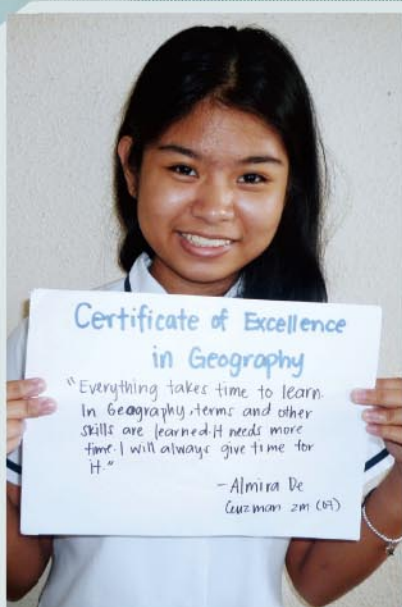 Certificate of Excellence
in Geography
"Everything takes time to learn.
In Geography, terms and other
skills are learned. It needs more
time. I will always give time for
it."
-Almira De
Guzman 2M (07)